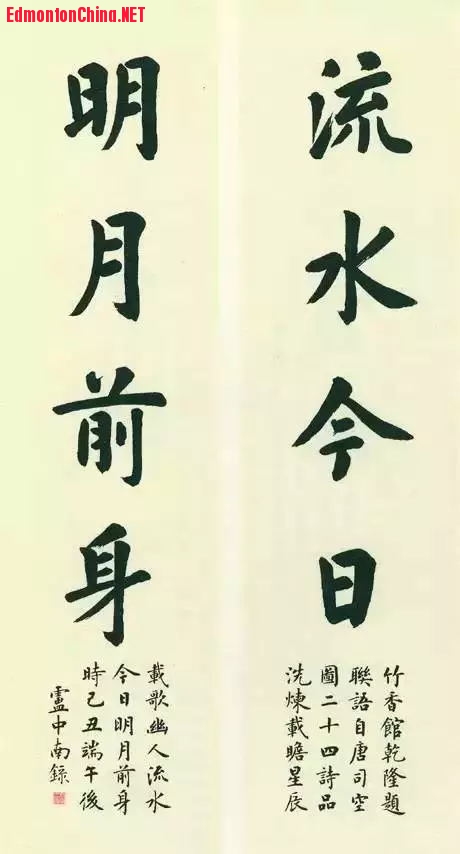 EdmontonChina.NET
流水今日
竹香館乾隆題
聯語自唐司空
圖二十四詩品
洗煉載瞻星辰
明月前身
載歌幽人流水
今日明月前身
時己丑端午後
盧中南錄